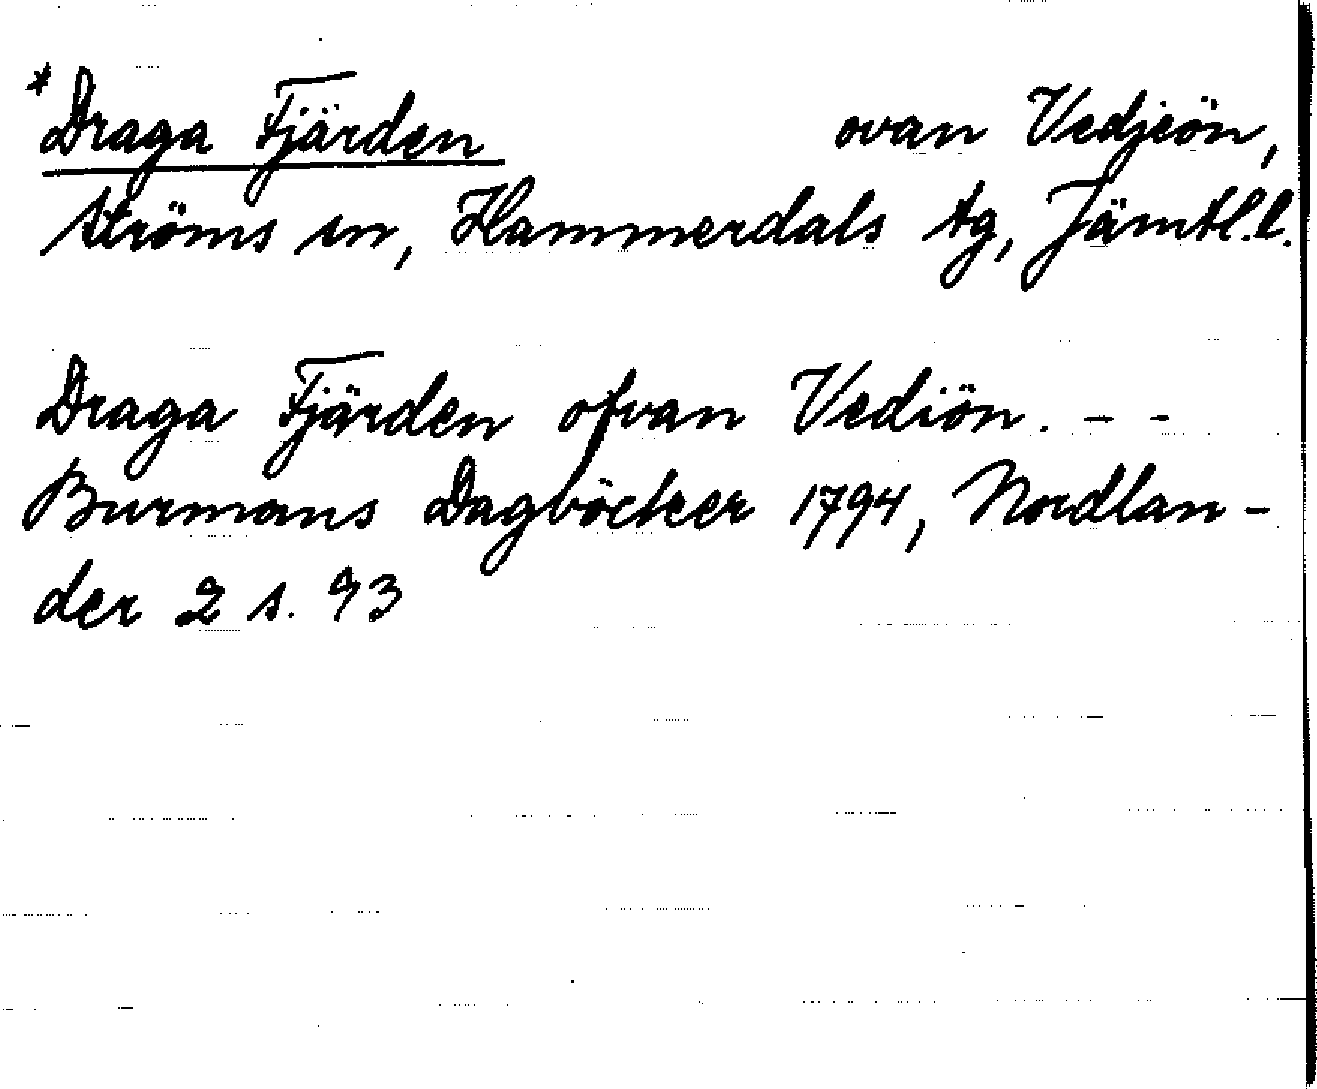 *Draga Fjärden ovan Vedjeön,
Ströms sn, Hammerdals tg, Jämtl.l.
Draga Fjärden ofvan Vediön. - -
Burmans Dagböcker 1794, Nordlan-
der 2 s. 93